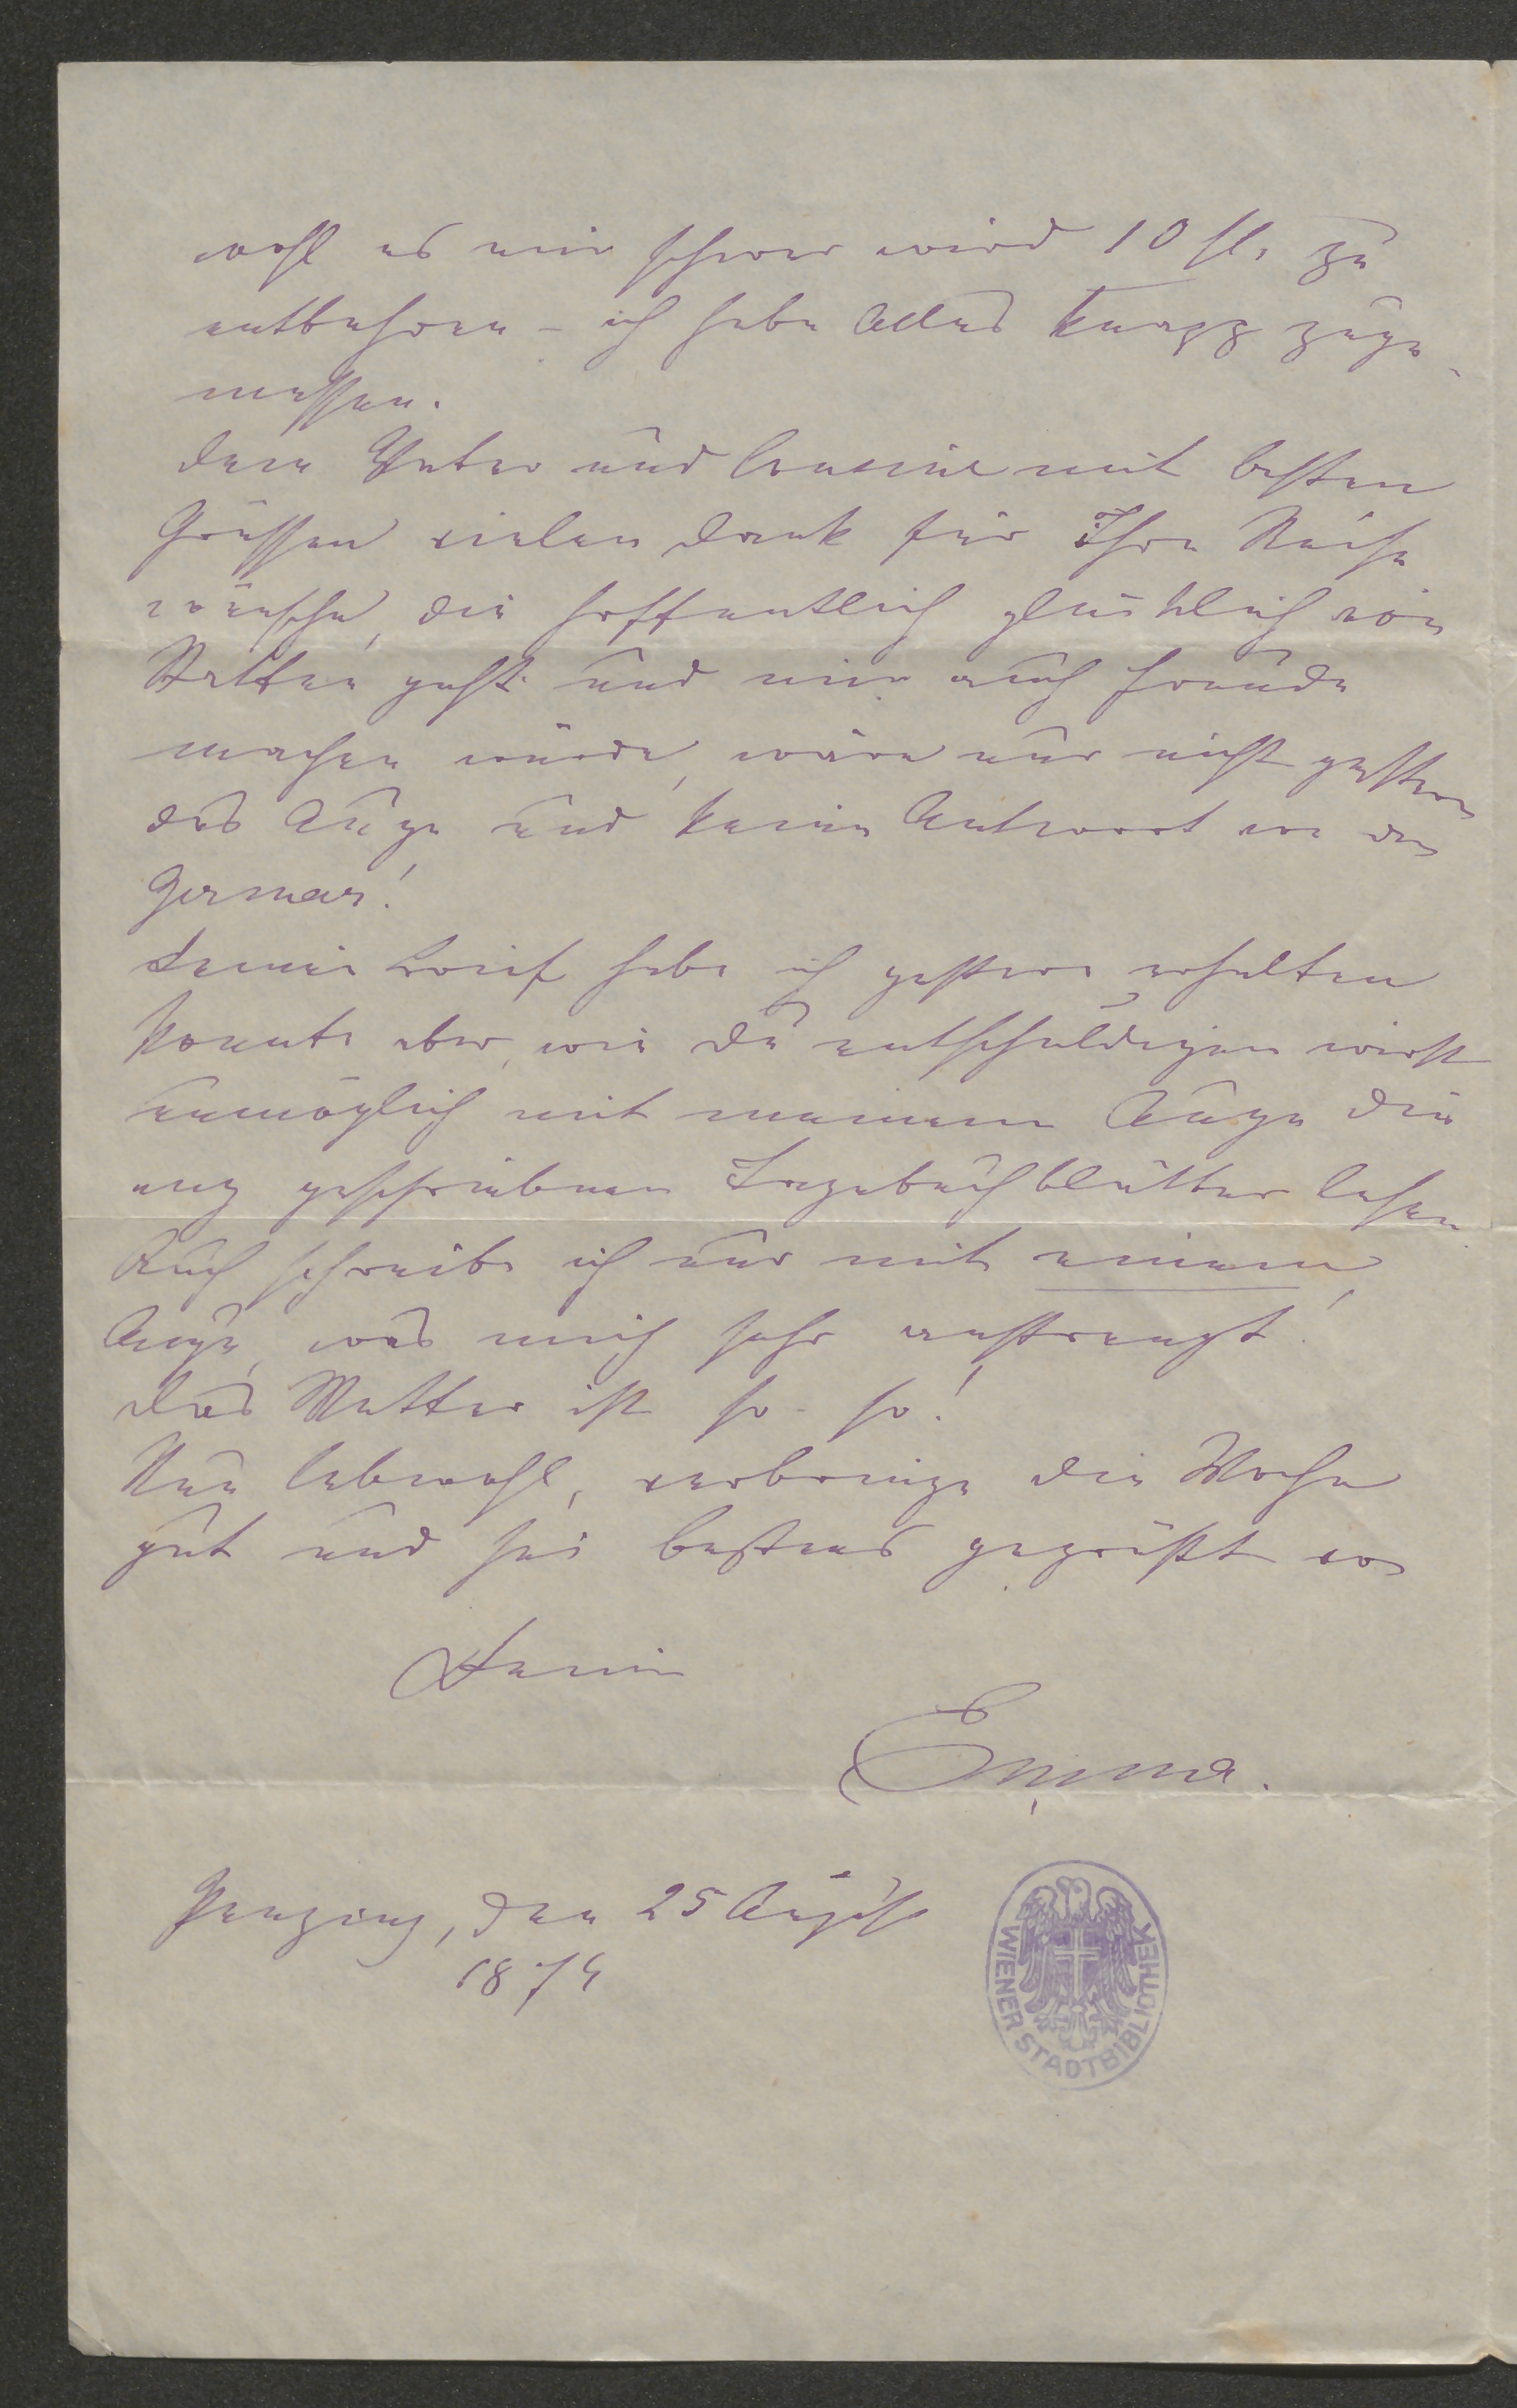 wohl es mir schwer wird 10 fl. zu
entbehren – ich habe Alles knapp zuge-
messen.
Dem Vater und Cousine mit besten
Grüssen vielen Dank für Ihre Reise
wünsche, die hoffentlich glücklich von
Statten geht und mir auch Freude
machen würde, wäre nur nicht gestern
das Auge und keine Antwort von den
Deinen Brief habe ich gestern erhalten
konnte aber, wie Du entschuldigen wirst
unmöglich mit meinem Auge die
eng geschriebenen Tagebuchblätter lesen
Auch schreibe ich nur mit einem
Auge, was mich sehr anstrengt!
Das Wetter ist so – so!
Nun lebwohl, verbringe die Woche
gut und sei bestens gegrüßt von
Deiner
Emma.
Penzing, den 25 August
1874
WIENER STADTBIBLIOTHEK